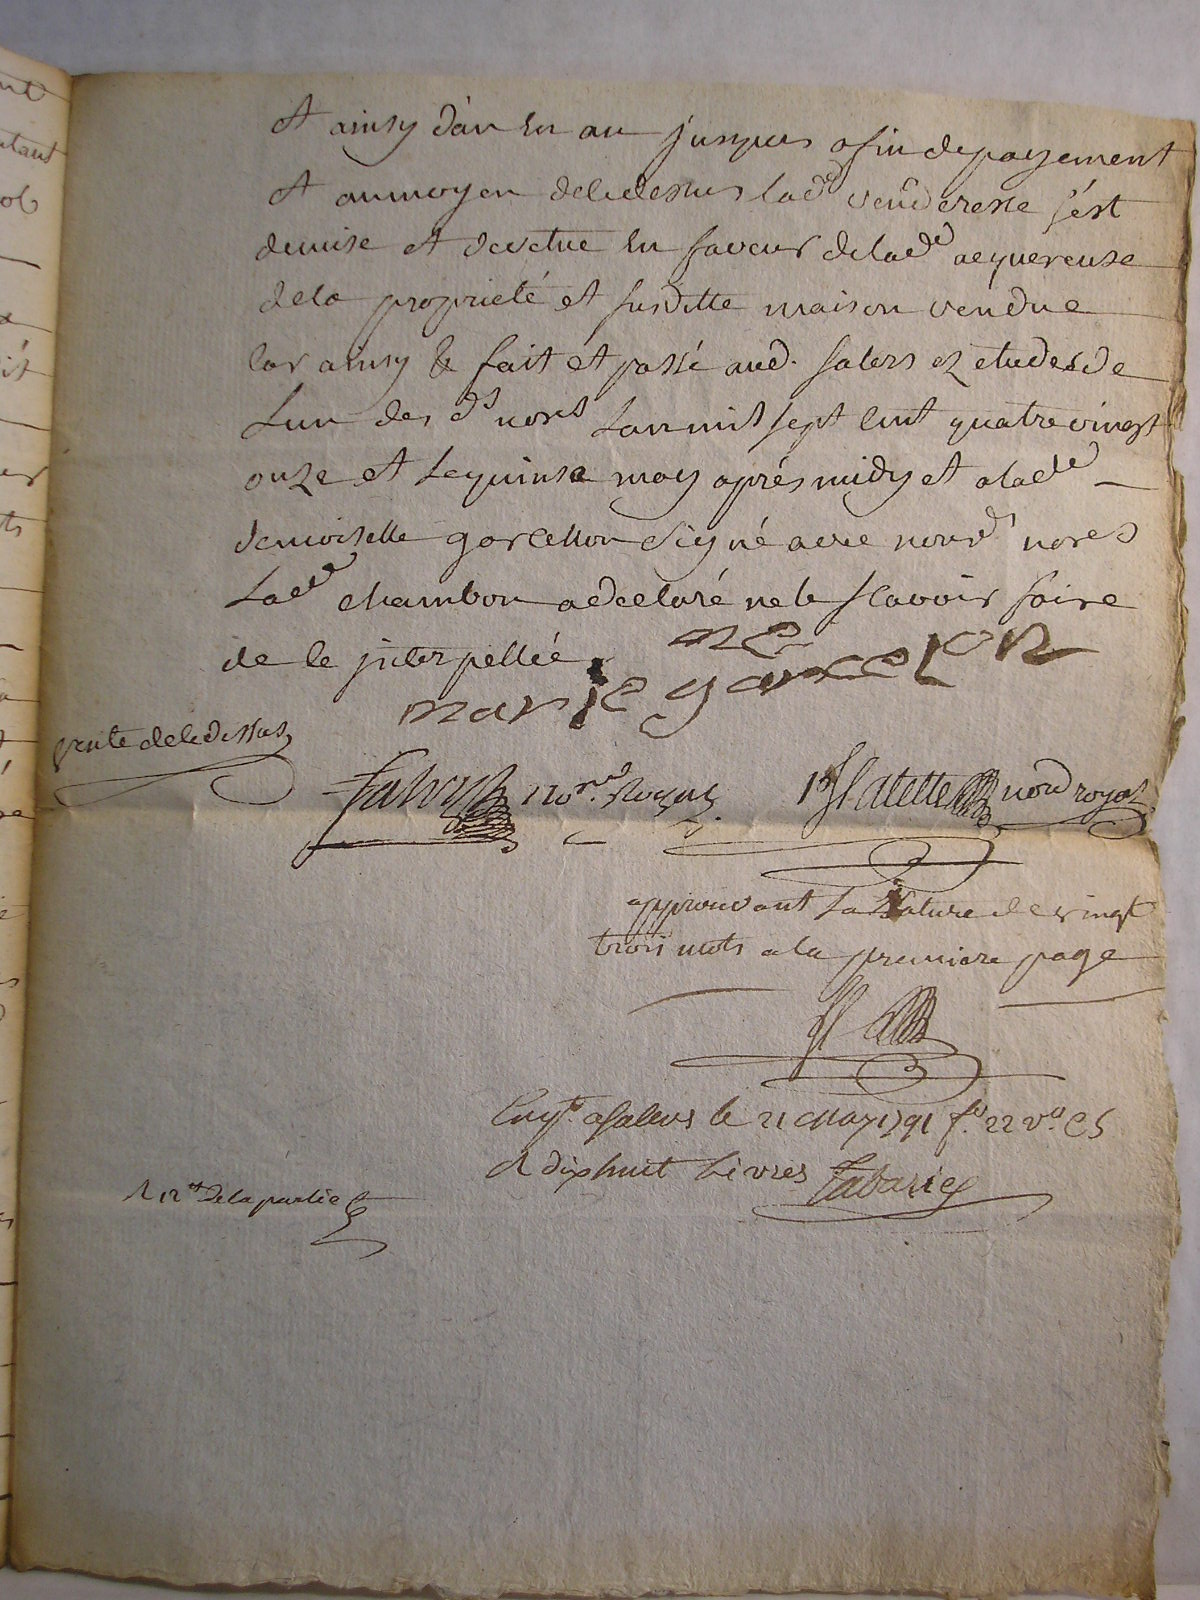 et ainsy d'an en an jusques a fin de payement
et au moyen de ce dessus lade venderesse s'est
demise et devetue en faveur de lade acquereuse
de la proprieté et susditte maison vendue
car ainsy &c fait et passé aud. salers ez etudes de
l'un des ds nores l'an mil sept cent quatre vingt
onze et le quinse may aprés midy et a lade
demoiselle garcellon signé avec nousds nores
lade chambon a declaré ne le scavoir faire
de ce interpellée
marie garcelon
vente de ce dessus
nore royal
nore royal
approuvant la rature de vingt
trois mots a la premiere page
Engt. a salers le 21 May 1791 f.o 22 v.o C 5
R dix huit livres Tabarie
R 12 tt de la partie